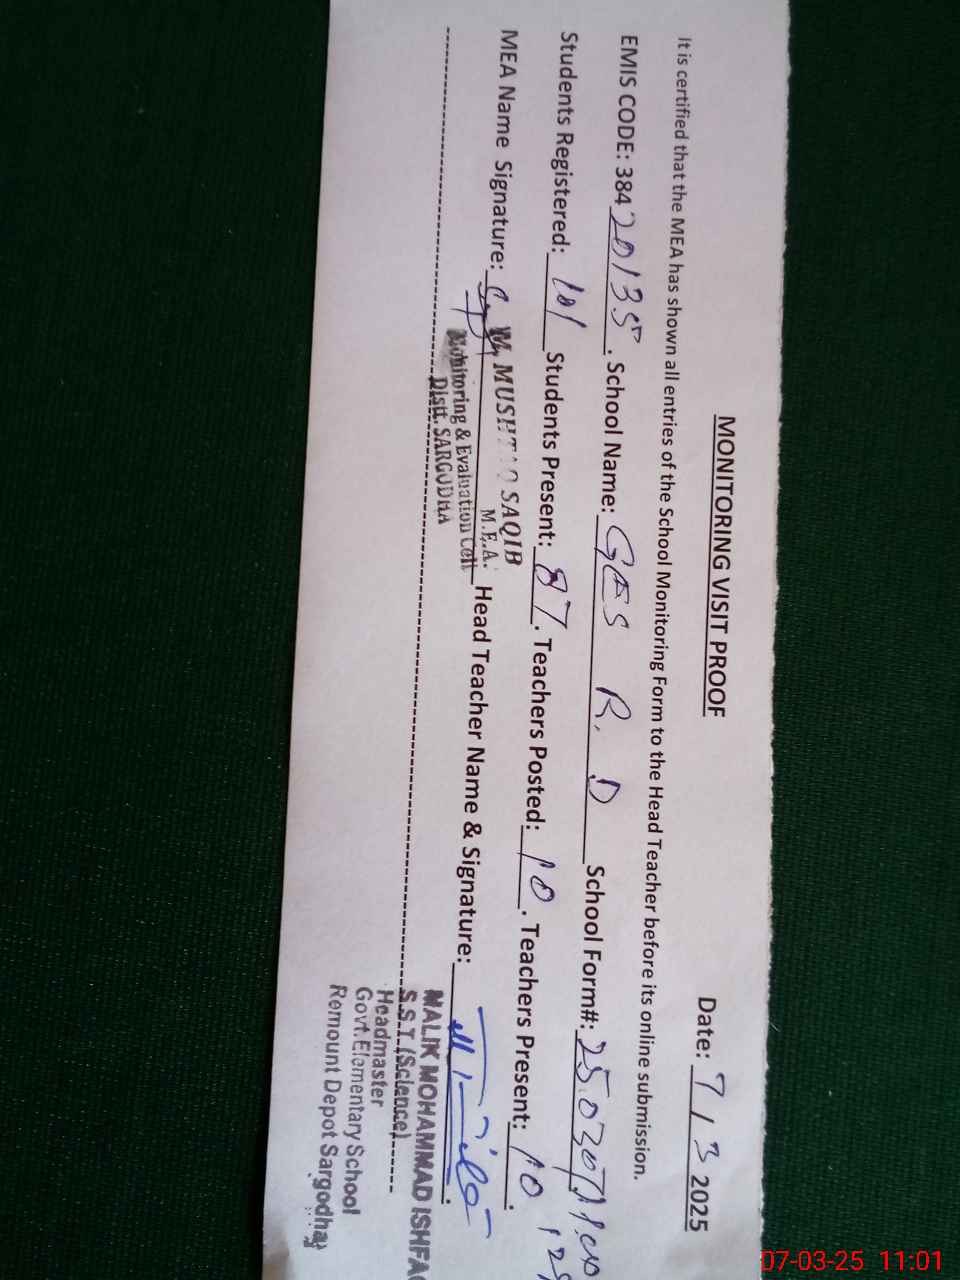 MONITORING VISIT PROOF
Date: 7/3 2025
It is certified that the MEA has shown all entries of the School Monitoring Form to the Head Teacher before its online submission.
EMIS CODE: 38420135. School Name: GES R. D School Form#:
Students Registered: 101 Students Present: 87. Teachers Posted: 10. Teachers Present: 10.
MEA Name Signature: Head Teacher Name & Signature:
MUSHTAQ SAQIB
M.E.A.
Monitoring & Evaluation Cell
Distt. SARGODHA
MALIK MOHAMMAD ISHFA
S.S.T (Science)
Headmaster
Govt. Elementary School
Remount Depot Sargodha
07-03-25 11:01